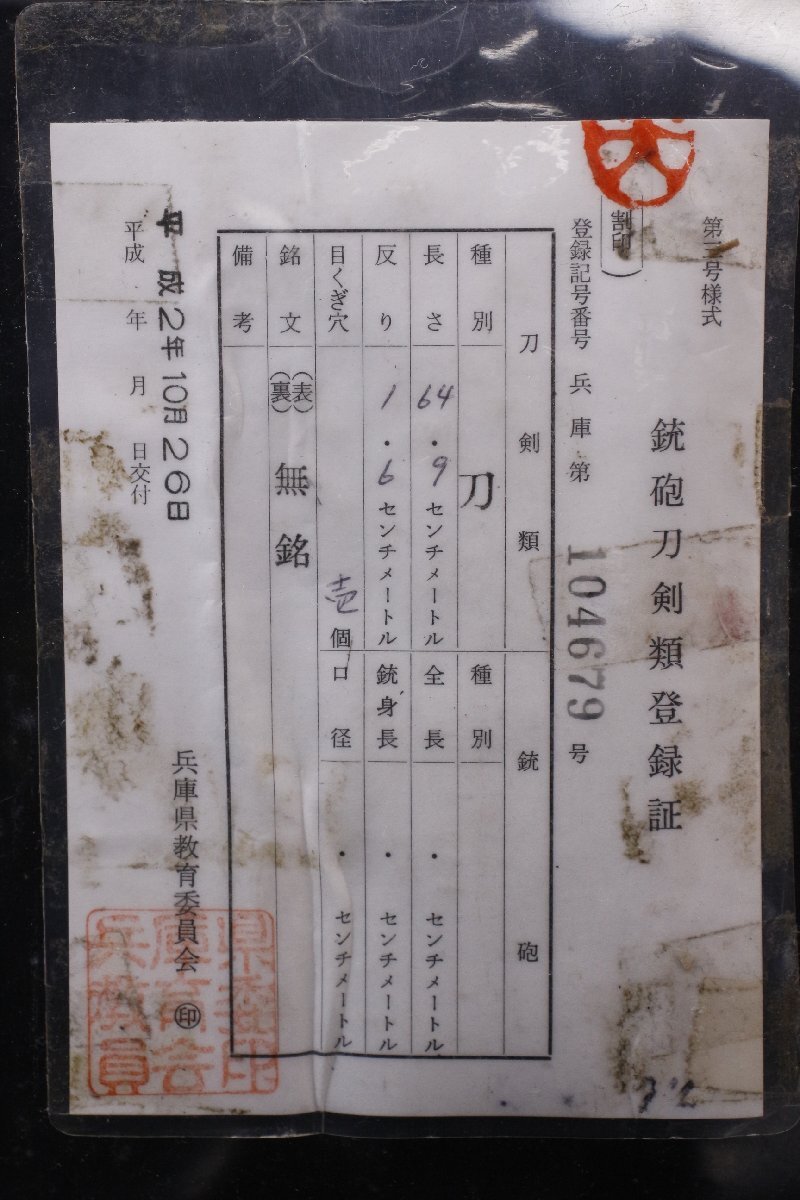 第三号様式
銃砲刀剣類登録証
(割印)
登録記号番号 兵庫第 104679 号
刀剣類 銃砲
種別 刀 種別
長さ 64・9センチメートル 全長 ・ センチメートル
反り 1・6センチメートル 銃身長 ・ センチメートル
目くぎ穴 壱個 口径 ・ センチメートル
銘文 (表) 無銘
(裏)
備考
平成2年10月26日
平成 年 月 日交付
兵庫県教育委員会 ㊞